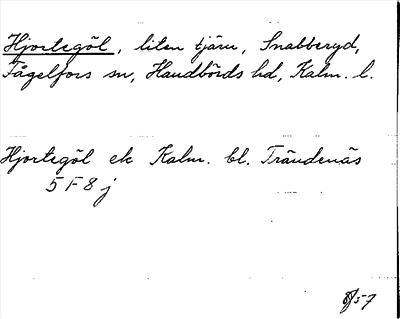 Hjortegöl, liten tjärn, Snabberyd,
Fågelfors sn, Handbörds hd, Kalm. l.
Hjortegöl ek Kalm. bl. Trändenäs
5 F 8 j
57